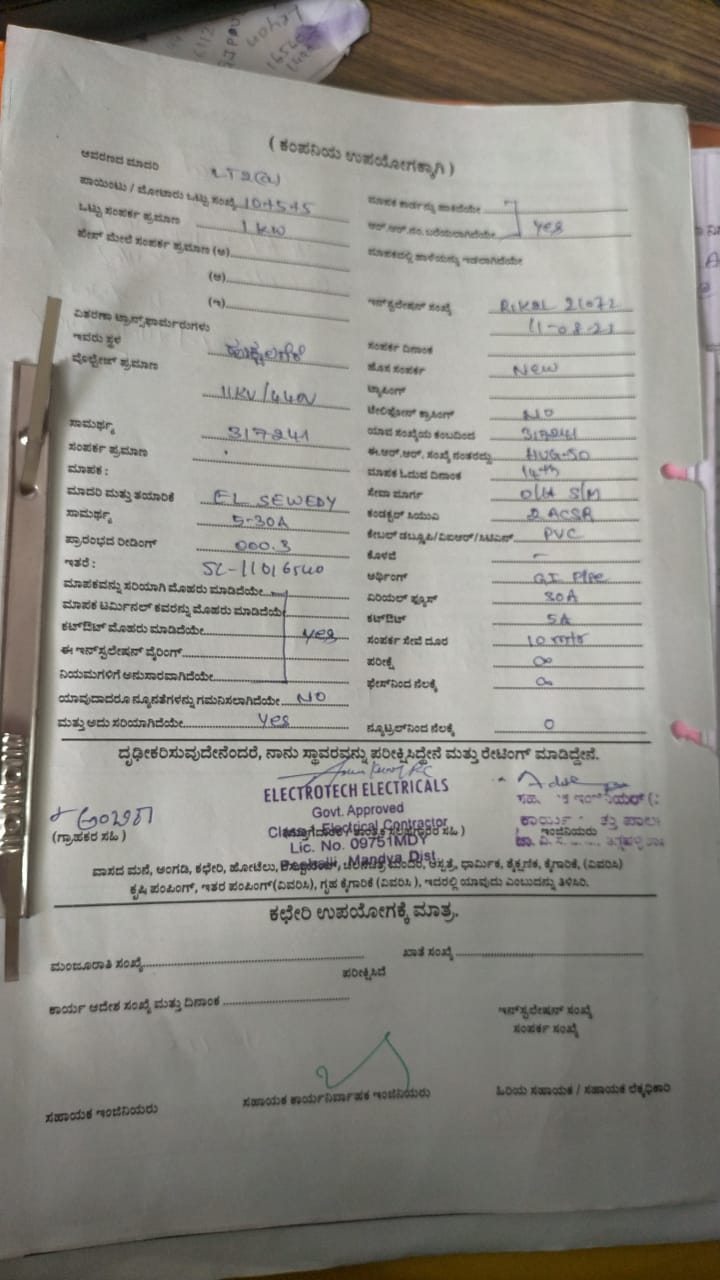 ( ಕಂಪನಿಯ ಉಪಯೋಗಕ್ಕಾಗಿ )
ಆವರಣದ ಮಾದರಿ LT2(a)
ಪಾಯಿಂಟು / ಮೋಟಾರು ಒಟ್ಟು ಸಂಖ್ಯೆ 104545
ಒಟ್ಟು ಸಂಪರ್ಕ ಪ್ರಮಾಣ 1 KW
ಫೇಸ್ ಮೇಲೆ ಸಂಪರ್ಕ ಪ್ರಮಾಣ (ಅ)
(ಆ)
(ಇ)
ವಿತರಣಾ ಟ್ರಾನ್ಸ್‌ಫಾರ್ಮರುಗಳು
ಇವರು ಸ್ಥಳ
ವೋಲ್ಟೇಜ್ ಪ್ರಮಾಣ
11KV/440V
ಸಾಮರ್ಥ್ಯ 317241
ಸಂಪರ್ಕ ಪ್ರಮಾಣ
ಮಾಪಕ :
ಮಾದರಿ ಮತ್ತು ತಯಾರಿಕೆ EL SEWEDY
ಸಾಮರ್ಥ್ಯ 5-30A
ಪ್ರಾರಂಭದ ರೀಡಿಂಗ್ 000.3
ಇತರೆ : SL-11016540
ಮಾಪಕವನ್ನು ಸರಿಯಾಗಿ ಮೊಹರು ಮಾಡಿದೆಯೇ
ಮಾಪಕ ಟರ್ಮಿನಲ್ ಕವರನ್ನು ಮೊಹರು ಮಾಡಿದೆಯೇ
ಕಟ್‌ಔಟ್ ಮೊಹರು ಮಾಡಿದೆಯೇ yes
ಈ ಇನ್‌ಸ್ಟಲೇಷನ್ ವೈರಿಂಗ್
ನಿಯಮಗಳಿಗೆ ಅನುಸಾರವಾಗಿದೆಯೇ
ಯಾವುದಾದರೂ ನ್ಯೂನತೆಗಳನ್ನು ಗಮನಿಸಲಾಗಿದೆಯೇ NO
ಮತ್ತು ಅದು ಸರಿಯಾಗಿದೆಯೇ yes
ಮಾಪಕ ಕಾರ್ಡನ್ನು ಹಾಕಿದೆಯೇ
ಆರ್.ಆರ್.ನಂ. ಬರೆಯಲಾಗಿದೆಯೇ yes
ಮಾಪಕದಲ್ಲಿ ಹಾಳೆಯನ್ನು ಇಡಲಾಗಿದೆಯೇ
ಇನ್‌ಸ್ಟಲೇಷನ್ ಸಂಖ್ಯೆ RIKBL 21072
11-08-21
ಸಂಪರ್ಕ ದಿನಾಂಕ
ಹೊಸ ಸಂಪರ್ಕ NEW
ಟ್ಯಾಪಿಂಗ್
ಟೆಲಿಫೋನ್ ಕ್ರಾಸಿಂಗ್ NO
ಯಾವ ಸಂಖ್ಯೆಯ ಕಂಬದಿಂದ 317241
ಈ.ಆರ್.ಆರ್. ಸಂಖ್ಯೆ ನಂತರದ್ದು HUG-50
ಮಾಪಕ ಓದುವ ದಿನಾಂಕ 14th
ಸೇವಾ ಮಾರ್ಗ O/H S/M
ಕಂಡಕ್ಟರ್ ಸಿಯುವಿ 2 ACSR
ಕೇಬಲ್ ಡಬ್ಲ್ಯೂಪಿ/ವಿಐಆರ್/ಸಿಟಿಎಸ್ PVC
ಕೊಳವೆ –
ಅರ್ಥಿಂಗ್ GI Pipe
ಏರಿಯಲ್ ಫ್ಯೂಸ್ 30A
ಕಟ್‌ಔಟ್ 5A
ಸಂಪರ್ಕ ಸೇವೆ ದೂರ 10 mtr
ಪರೀಕ್ಷೆ ∞
ಫೇಸ್‌ನಿಂದ ನೆಲಕ್ಕೆ ∞
ನ್ಯೂಟ್ರಲ್‌ನಿಂದ ನೆಲಕ್ಕೆ 0
ದೃಢೀಕರಿಸುವುದೇನೆಂದರೆ, ನಾನು ಸ್ಥಾವರವನ್ನು ಪರೀಕ್ಷಿಸಿದ್ದೇನೆ ಮತ್ತು ರೇಟಿಂಗ್ ಮಾಡಿದ್ದೇನೆ.
ELECTROTECH ELECTRICALS
Govt. Approved
Class-I Electrical Contractor
Lic. No. 09751MDY
Mandya Dist
(ಗ್ರಾಹಕರ ಸಹಿ )
ಇಂಜಿನಿಯರು
ವಾಸದ ಮನೆ, ಅಂಗಡಿ, ಕಛೇರಿ, ಹೋಟೆಲು, ಆಸ್ಪತ್ರೆ, ಧಾರ್ಮಿಕ, ಶೈಕ್ಷಣಿಕ, ಕೈಗಾರಿಕೆ, (ವಿವರಿಸಿ)
ಕೃಷಿ ಪಂಪಿಂಗ್, ಇತರ ಪಂಪಿಂಗ್(ವಿವರಿಸಿ), ಗೃಹ ಕೈಗಾರಿಕೆ (ವಿವರಿಸಿ ), ಇದರಲ್ಲಿ ಯಾವುದು ಎಂಬುದನ್ನು ತಿಳಿಸಿರಿ.
ಕಛೇರಿ ಉಪಯೋಗಕ್ಕೆ ಮಾತ್ರ.
ಮಂಜೂರಾತಿ ಸಂಖ್ಯೆ ಖಾತೆ ಸಂಖ್ಯೆ
ಪರೀಕ್ಷಿಸಿದೆ
ಕಾರ್ಯ ಆದೇಶ ಸಂಖ್ಯೆ ಮತ್ತು ದಿನಾಂಕ
ಇನ್‌ಸ್ಟಲೇಷನ್ ಸಂಖ್ಯೆ
ಸಂಪರ್ಕ ಸಂಖ್ಯೆ
ಸಹಾಯಕ ಇಂಜಿನಿಯರು ಸಹಾಯಕ ಕಾರ್ಯನಿರ್ವಾಹಕ ಇಂಜಿನಿಯರು ಹಿರಿಯ ಸಹಾಯಕ / ಸಹಾಯಕ ಲೆಕ್ಕಾಧಿಕಾರಿ